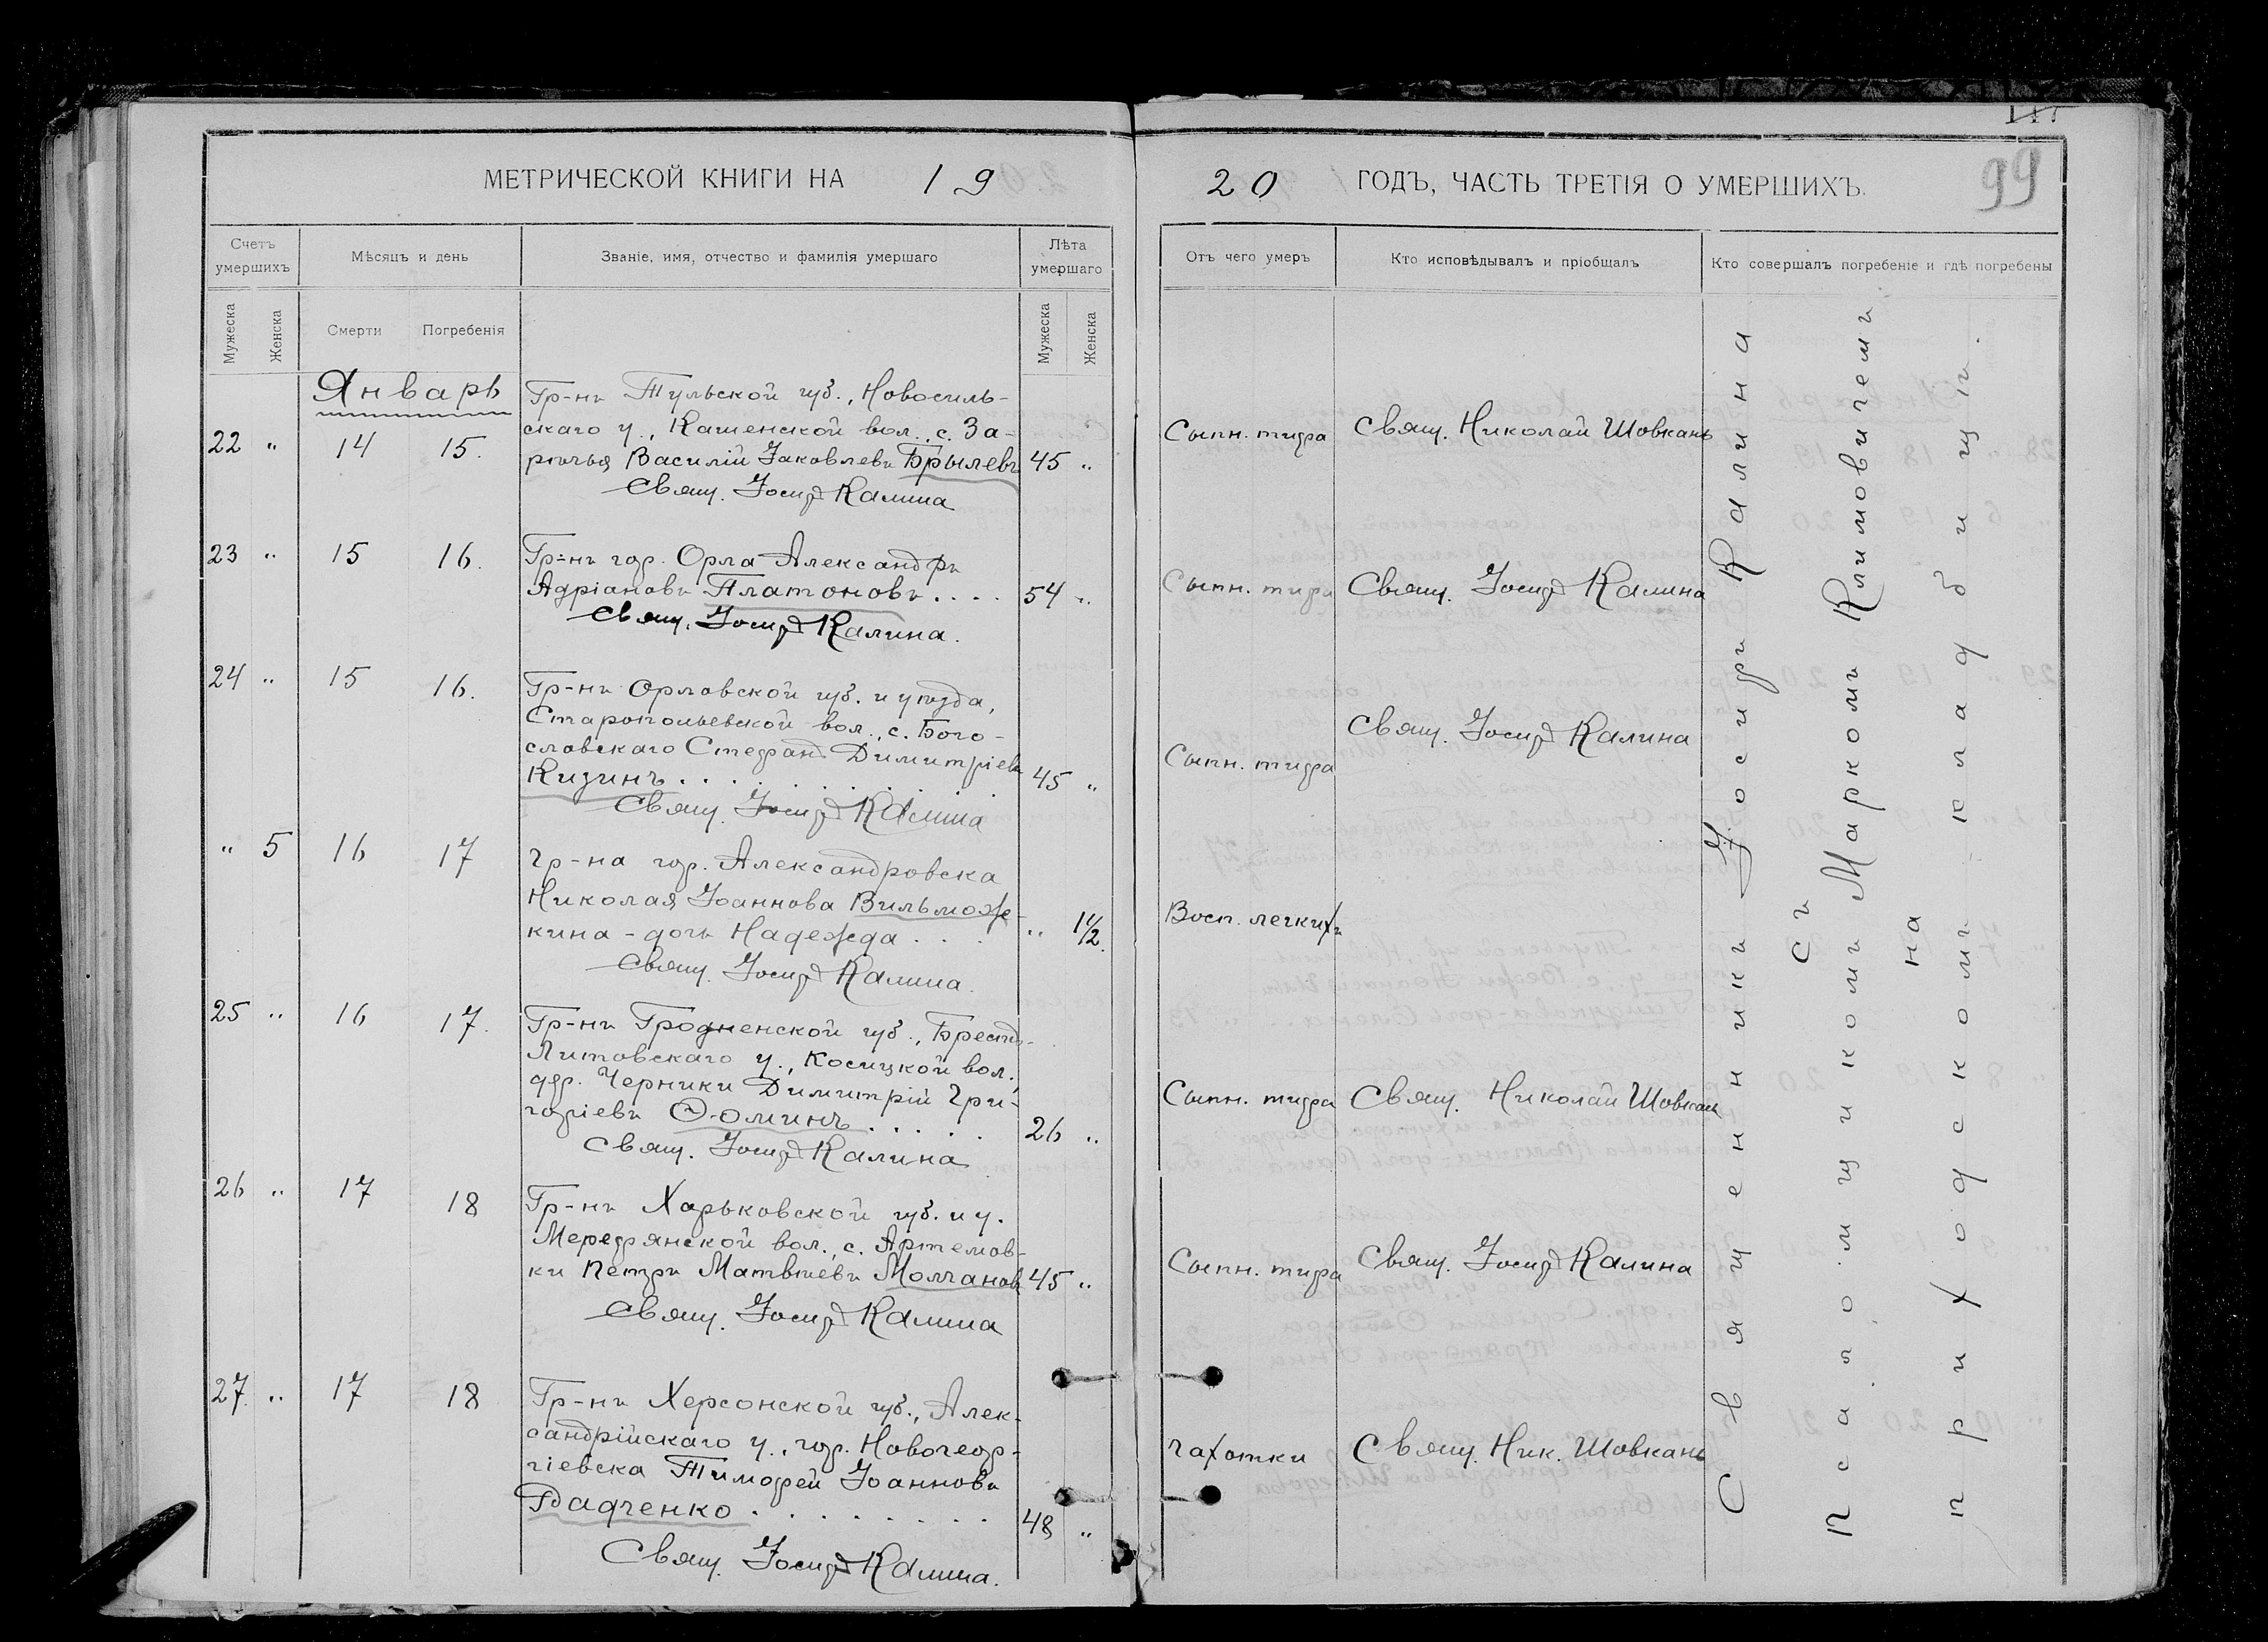 МЕТРИЧЕСКОЙ КНИГИ НА 19
Счетъ умершихъ
Мѣсяцъ и день
Званіе, имя, отчество и фамилія умершаго
Лѣта умершаго
Мужеска
Женска
Смерти
Погребенія
Мужеска
Женска
Январь
22 " 14 15.
Гр-нъ Тульской губ., Новосиль-
скаго у., Каменской вол., с. За-
рѣчья Василій Іаковлевъ Брылевъ 45 "
Свящ. Іосифъ Калина
23 " 15 16.
Гр-нъ гор. Орла Александръ
Адріановъ Платоновъ . . . . 54 "
Свящ. Іосифъ Калина.
24 " 15 16.
Гр-нъ Орловской губ. и уѣзда,
вол., с. Бого-
словскаго Стефанъ Димитріевъ
Кизинъ . . . . . . . . . 45 "
Свящ. Іосифъ Калина
" 5 16 17
Гр-на гор. Александровска
Николая Іоаннова Вильможе-
кина - дочь Надежда . . . " 1 1/2.
Свящ. Іосифъ Калина.
25 " 16 17.
Гр-нъ Гродненской губ., Брестъ-
Литовскаго у., Косицкой вол.,
дер. Черники Димитрій Гри-
горіевъ Ѳоминъ . . . . . 26 "
Свящ. Іосифъ Калина
26 " 17 18
Гр-нъ Харьковской губ. и у.
Мерефянской вол., с. Артемов-
ки Петръ Матвѣевъ Молчановъ 45 "
Свящ. Іосифъ Калина
27. " 17 18
Гр-нъ Херсонской губ., Алек-
сандрійскаго у., гор. Новогеор-
гіевска Тимофей Іоанновъ
Радченко . . . . . . . . 48 "
Свящ. Іосифъ Калина.
99
20 ГОДЪ, ЧАСТЬ ТРЕТІЯ О УМЕРШИХЪ.
Отъ чего умеръ
Кто исповѣдывалъ и пріобщалъ
Кто совершалъ погребеніе и гдѣ погребены
Сыпн. тифа Свящ. Николай Шовкань
Сыпн. тифа Свящ. Іосифъ Калина
Сыпн. тифа Свящ. Іосифъ Калина
Восп. легкихъ
Сыпн. тифа Свящ. Николай Шовкань
Сыпн. тифа Свящ. Іосифъ Калина
Чахотки Свящ. Ник. Шовкань
Священникъ Іосифъ Калина
съ
Псаломщикомъ Маркомъ Климовичемъ
на
приходскомъ кладбищѣ.